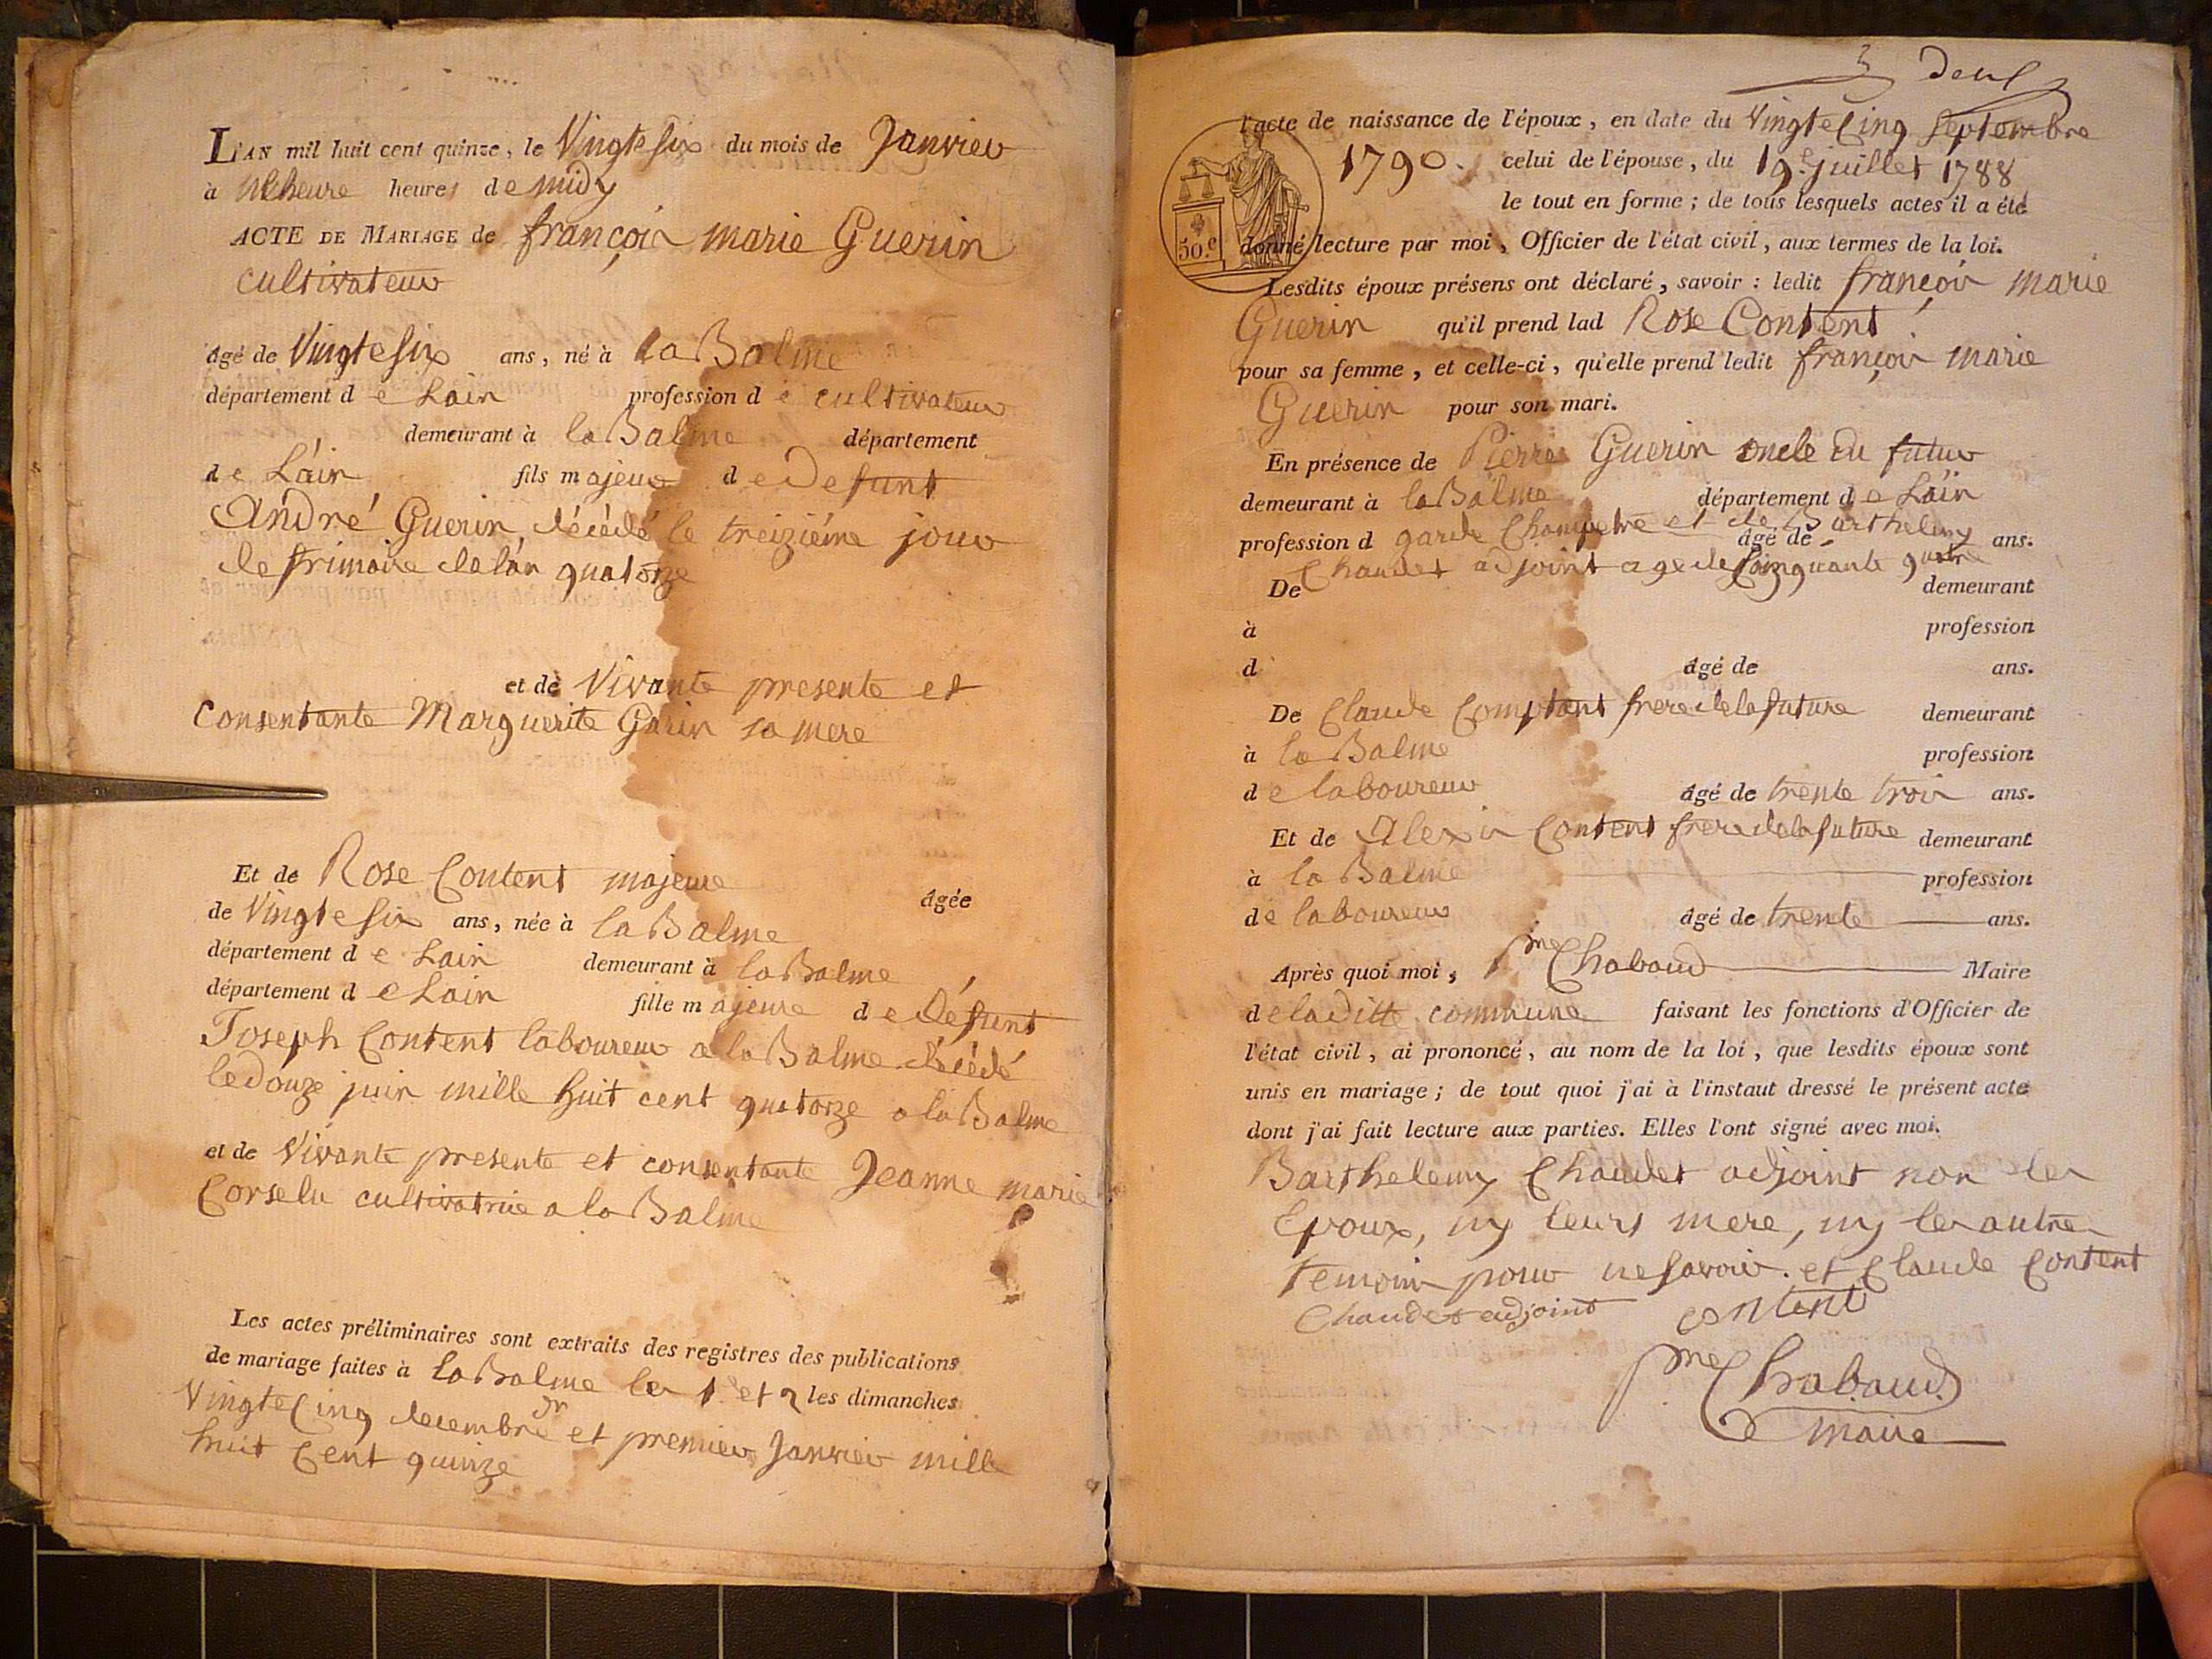 L'AN mil huit cent quinze, le Vingte six du mois de Janvier
à heure heures de midy
ACTE DE MARIAGE de françois marie Guerin
cultivateur
âgé de Vingte six ans, né à la Balme
département de Lain profession de cultivateur
demeurant à la Balme département
de L'ain fils majeur de Defunt
André Guerin, décédé le treiziéme jour
de frimaire de lan quatorze
et de Vivante presente et
consentante Marguerite Garin sa mere
Et de Rose Content majeure âgée
de Vingte six ans, née à la Balme
département de Lain demeurant à la Balme
département de Lain fille majeure de Défunt
Joseph Content laboureur a la Balme décédé
le douze juin mille huit cent quatorze a la Balme
et de Vivante presente et consentante Jeanne marie
Corselu cultivatrice a la Balme
Les actes préliminaires sont extraits des registres des publications
de mariage faites à la Balme les 1 et 2 les dimanches
Vingte Cinq decembre dr et premier Janvier mille
huit Cent quinze
3 deux
l'acte de naissance de l'époux, en date du Vingte Cinq Septembre
1790. celui de l'épouse, du 19e juillet 1788
le tout en forme; de tous lesquels actes il a été
50.c donné lecture par moi, Officier de l'état civil, aux termes de la loi.
Lesdits époux présens ont déclaré, savoir: ledit françois marie
Guerin qu'il prend lad Rose Content
pour sa femme, et celle-ci, qu'elle prend ledit françois marie
Guerin pour son mari.
En présence de Pierre Guerin oncle du futur
demeurant à la Balme département de Lain
profession d garde Champetre et de Barthelemy âgé de ans.
De Chaudet adjoint age de Cinquante quatre demeurant
à profession
d âgé de ans.
De Claude Comptant frere de la future demeurant
à la Balme profession
de laboureur âgé de trente trois ans.
Et de Alexis Content frere de la future demeurant
à la Balme profession
de laboureur âgé de trente ans.
Après quoi moi, pme Chabaud Maire
de la ditte commune faisant les fonctions d'Officier de
l'état civil, ai prononcé, au nom de la loi, que lesdits époux sont
unis en mariage; de tout quoi j'ai à l'instaut dressé le présent acte
dont j'ai fait lecture aux parties. Elles l'ont signé avec moi.
Barthelemy Chaudet adjoint non les
Epoux, ny leurs mere, ny les autre
temoins pour ne savoir. et Claude Content
Chaudet adjoint content
pme Chabaud
maire